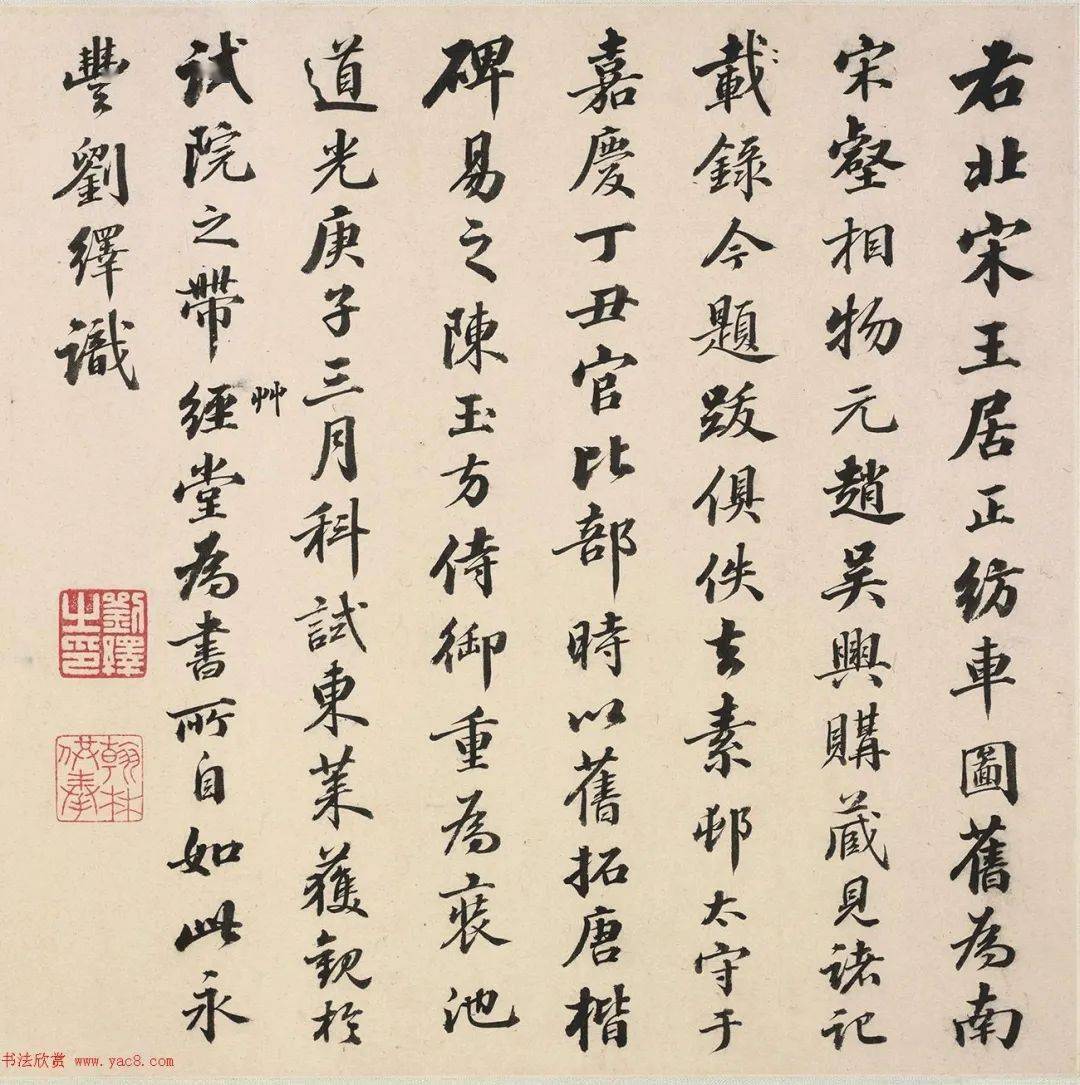 右北宋王居正紡車圖舊為南
宋壑相物元趙吳興購藏見諸記
載錄今題跋俱佚去素邨太守于
嘉慶丁丑官比部時以舊拓唐楷
碑易之陳玉方侍御重為裝池
道光庚子三月科試東萊獲觀於
試院之帶經艸堂為書所自如此永
豐劉繹識
劉繹之印
翰林供奉
书法欣赏 www.yac8.com